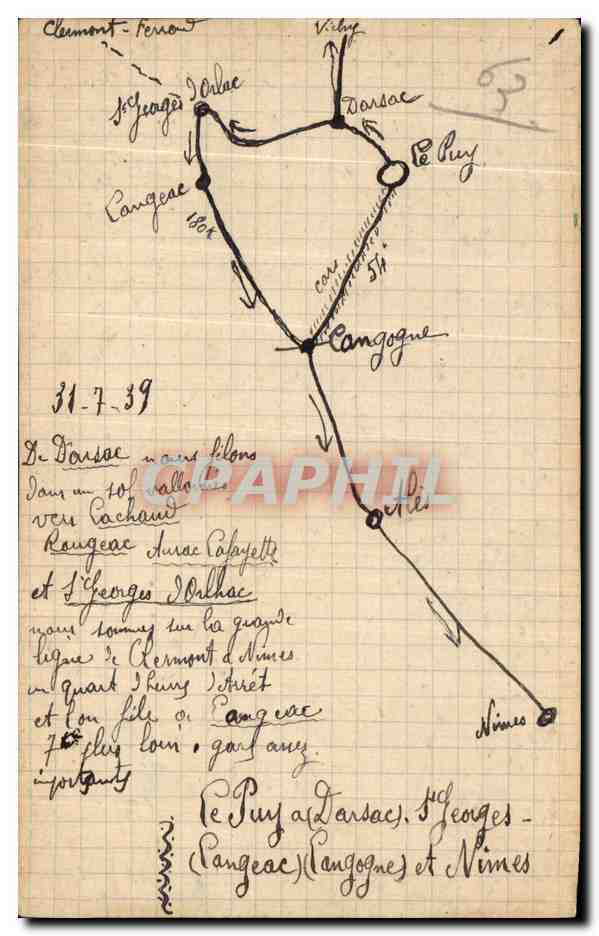 Clermont-Ferrand
Vichy
63
St Georges d'Orlac
Darsac
Le Puy
Langeac
180k
cars
54k
Langogne
31-7-39
De Darsac nous filons
dans un sol vallonné
vers Lachaud
Rougeac Aurac Lafayette
et St Georges d'Orlhac
nous sommes sur la grande
ligne de Clermont à Nimes
un quart d'heure d'Arrêt
et l'on file à Langeac
7k plus loin, gare assez
importants
Alès
Nimes
Le Puy a (Darsac). St Georges -
(Langeac) (Langogne) et Nimes
CPAPHIL